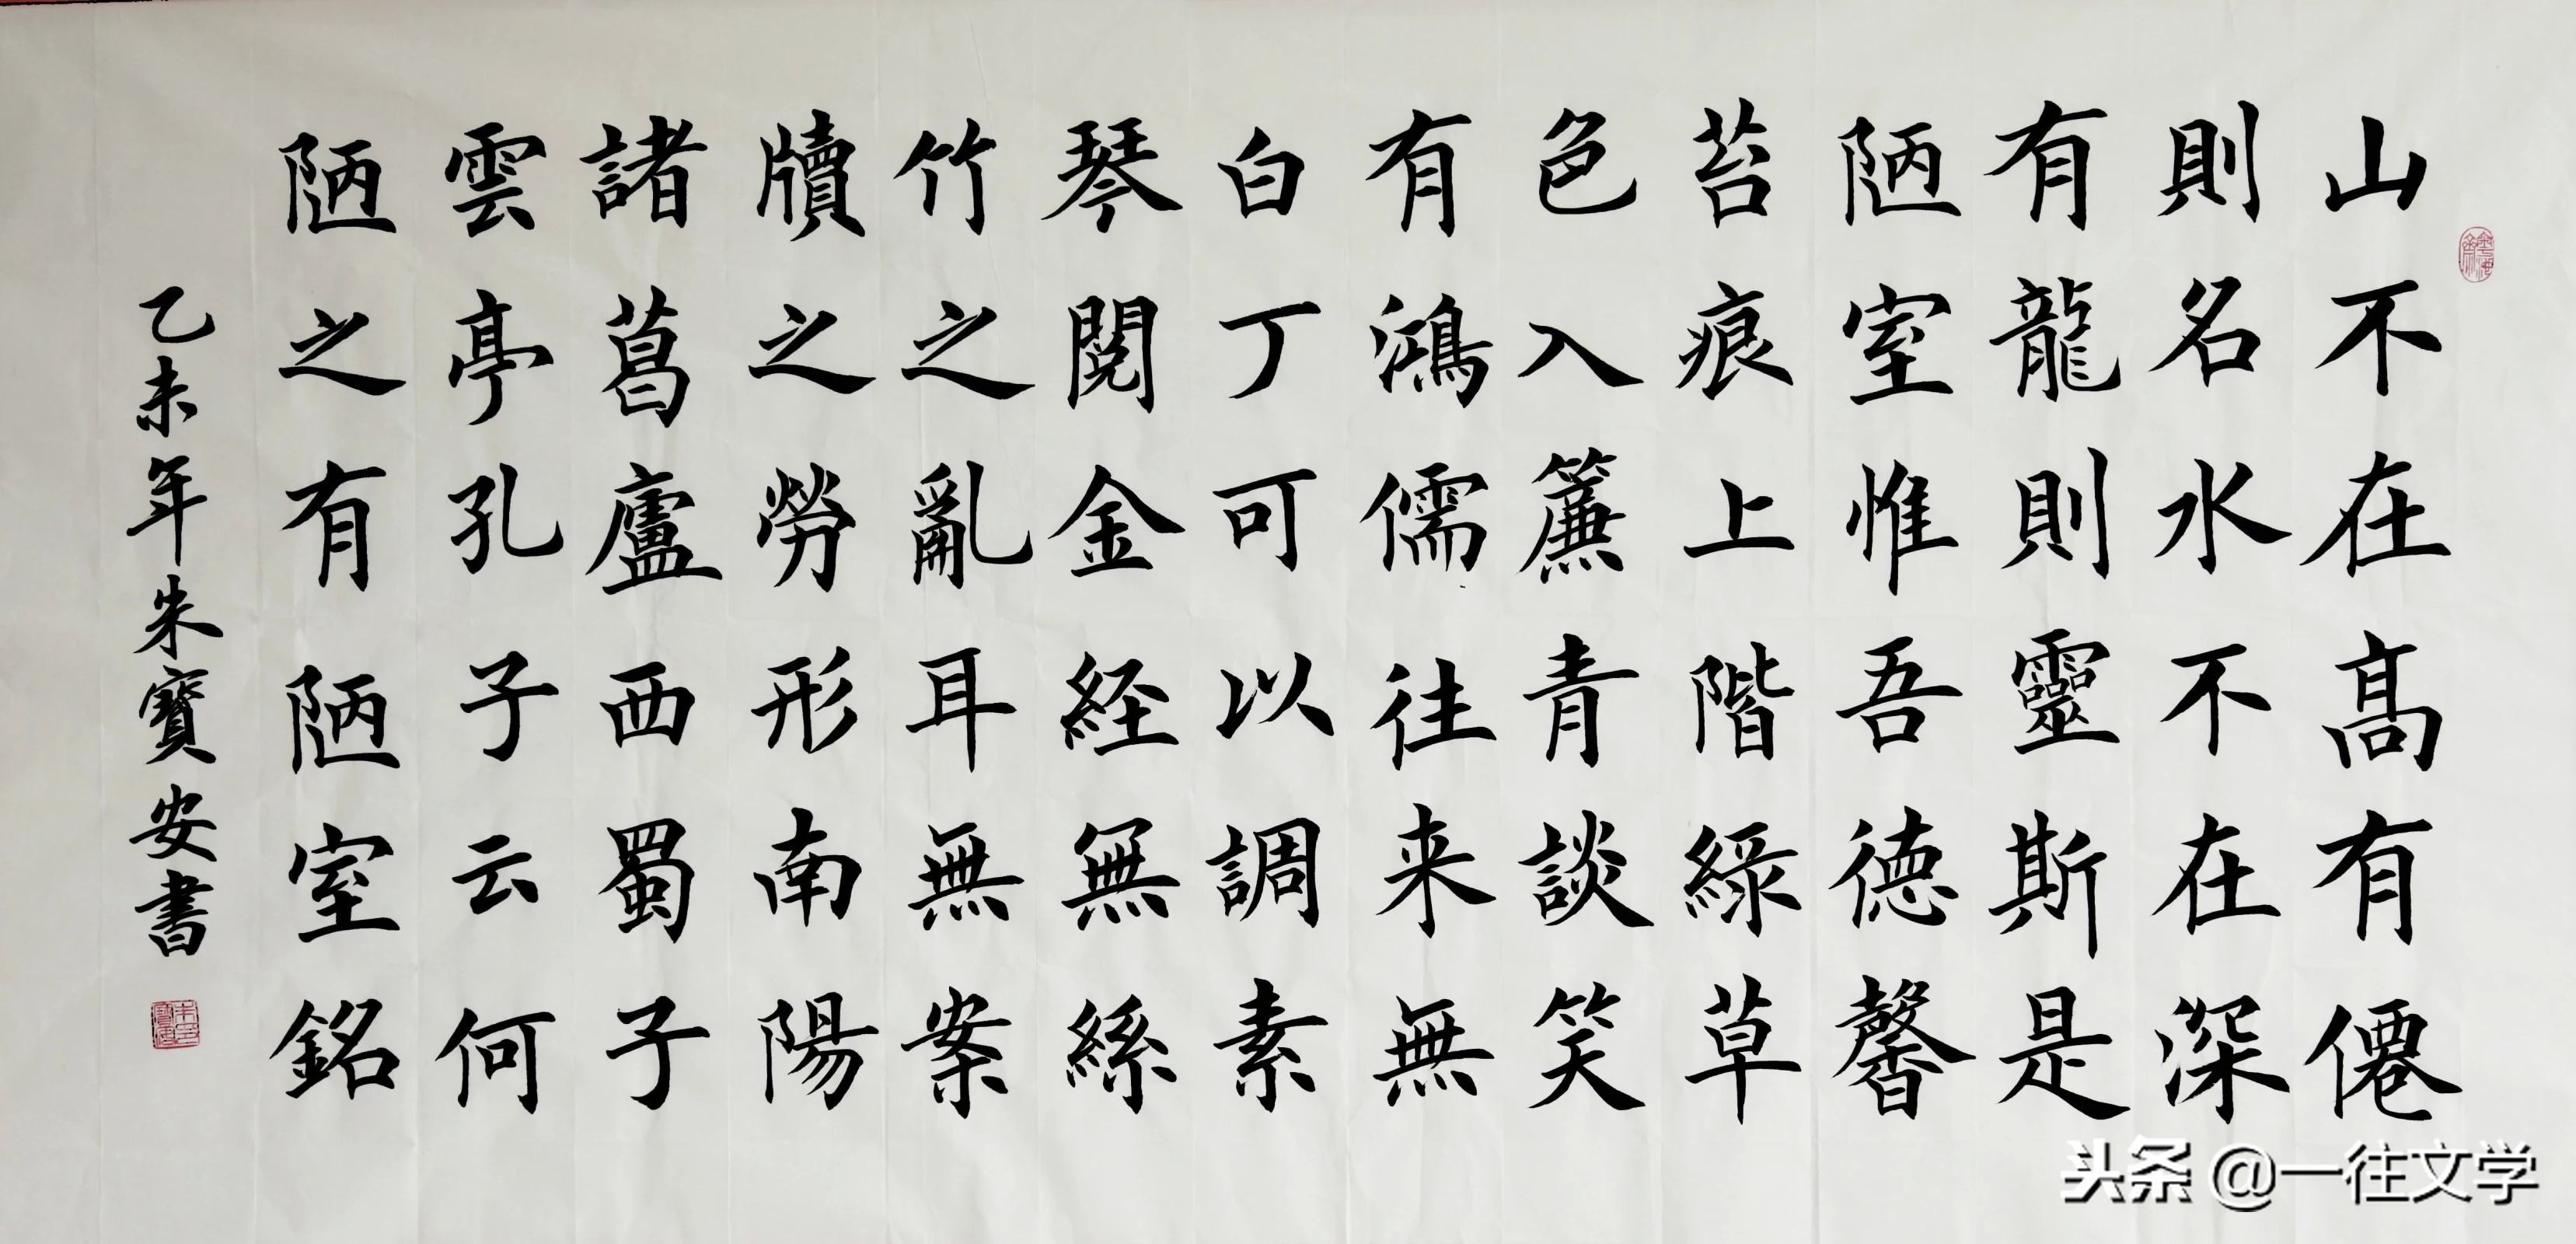 山不在高有僊
則名水不在深
有龍則靈斯是
陋室惟吾德馨
苔痕上階綠草
色入簾青談笑
有鴻儒往来無
白丁可以調素
琴閱金経無絲
竹之亂耳無案
牘之勞形南陽
諸葛廬西蜀子
雲亭孔子云何
陋之有陋室銘
乙未年朱寶安書
头条 @一往文学